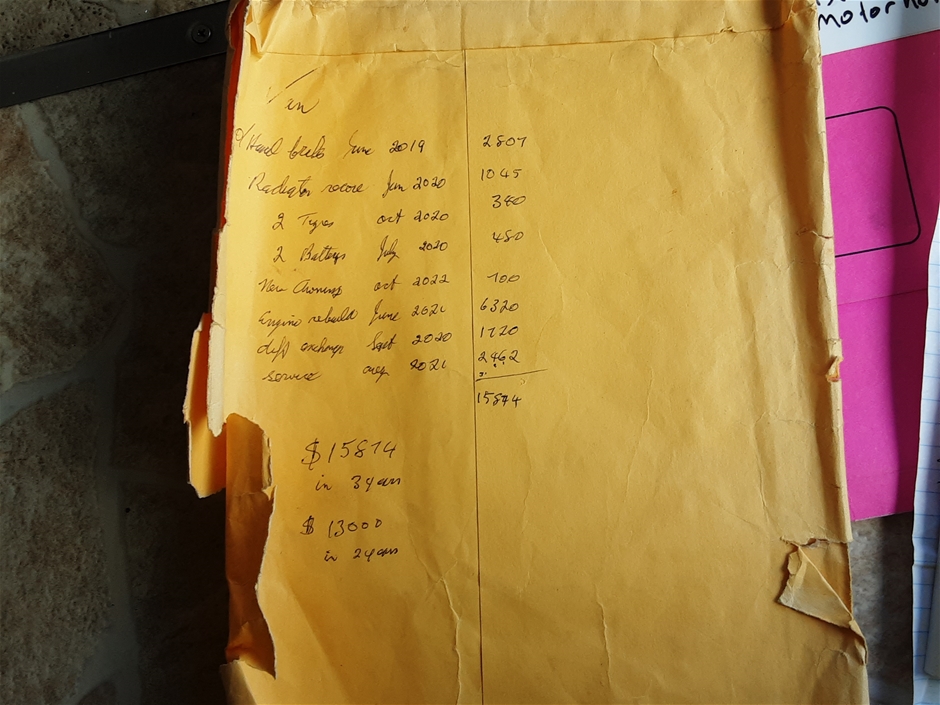 motorho
Van
Hand brake June 2019 2807
Radiator recore Jan 2020 1045
2 Tyres oct 2020 380
2 Batterys July 2020 480
New Awning oct 2022 700
Engine rebuild June 2021 6320
diff exchange Sept 2020 1720
service aug 2021 2462
15874
$15874
in 3 years
$13000
in 2 years